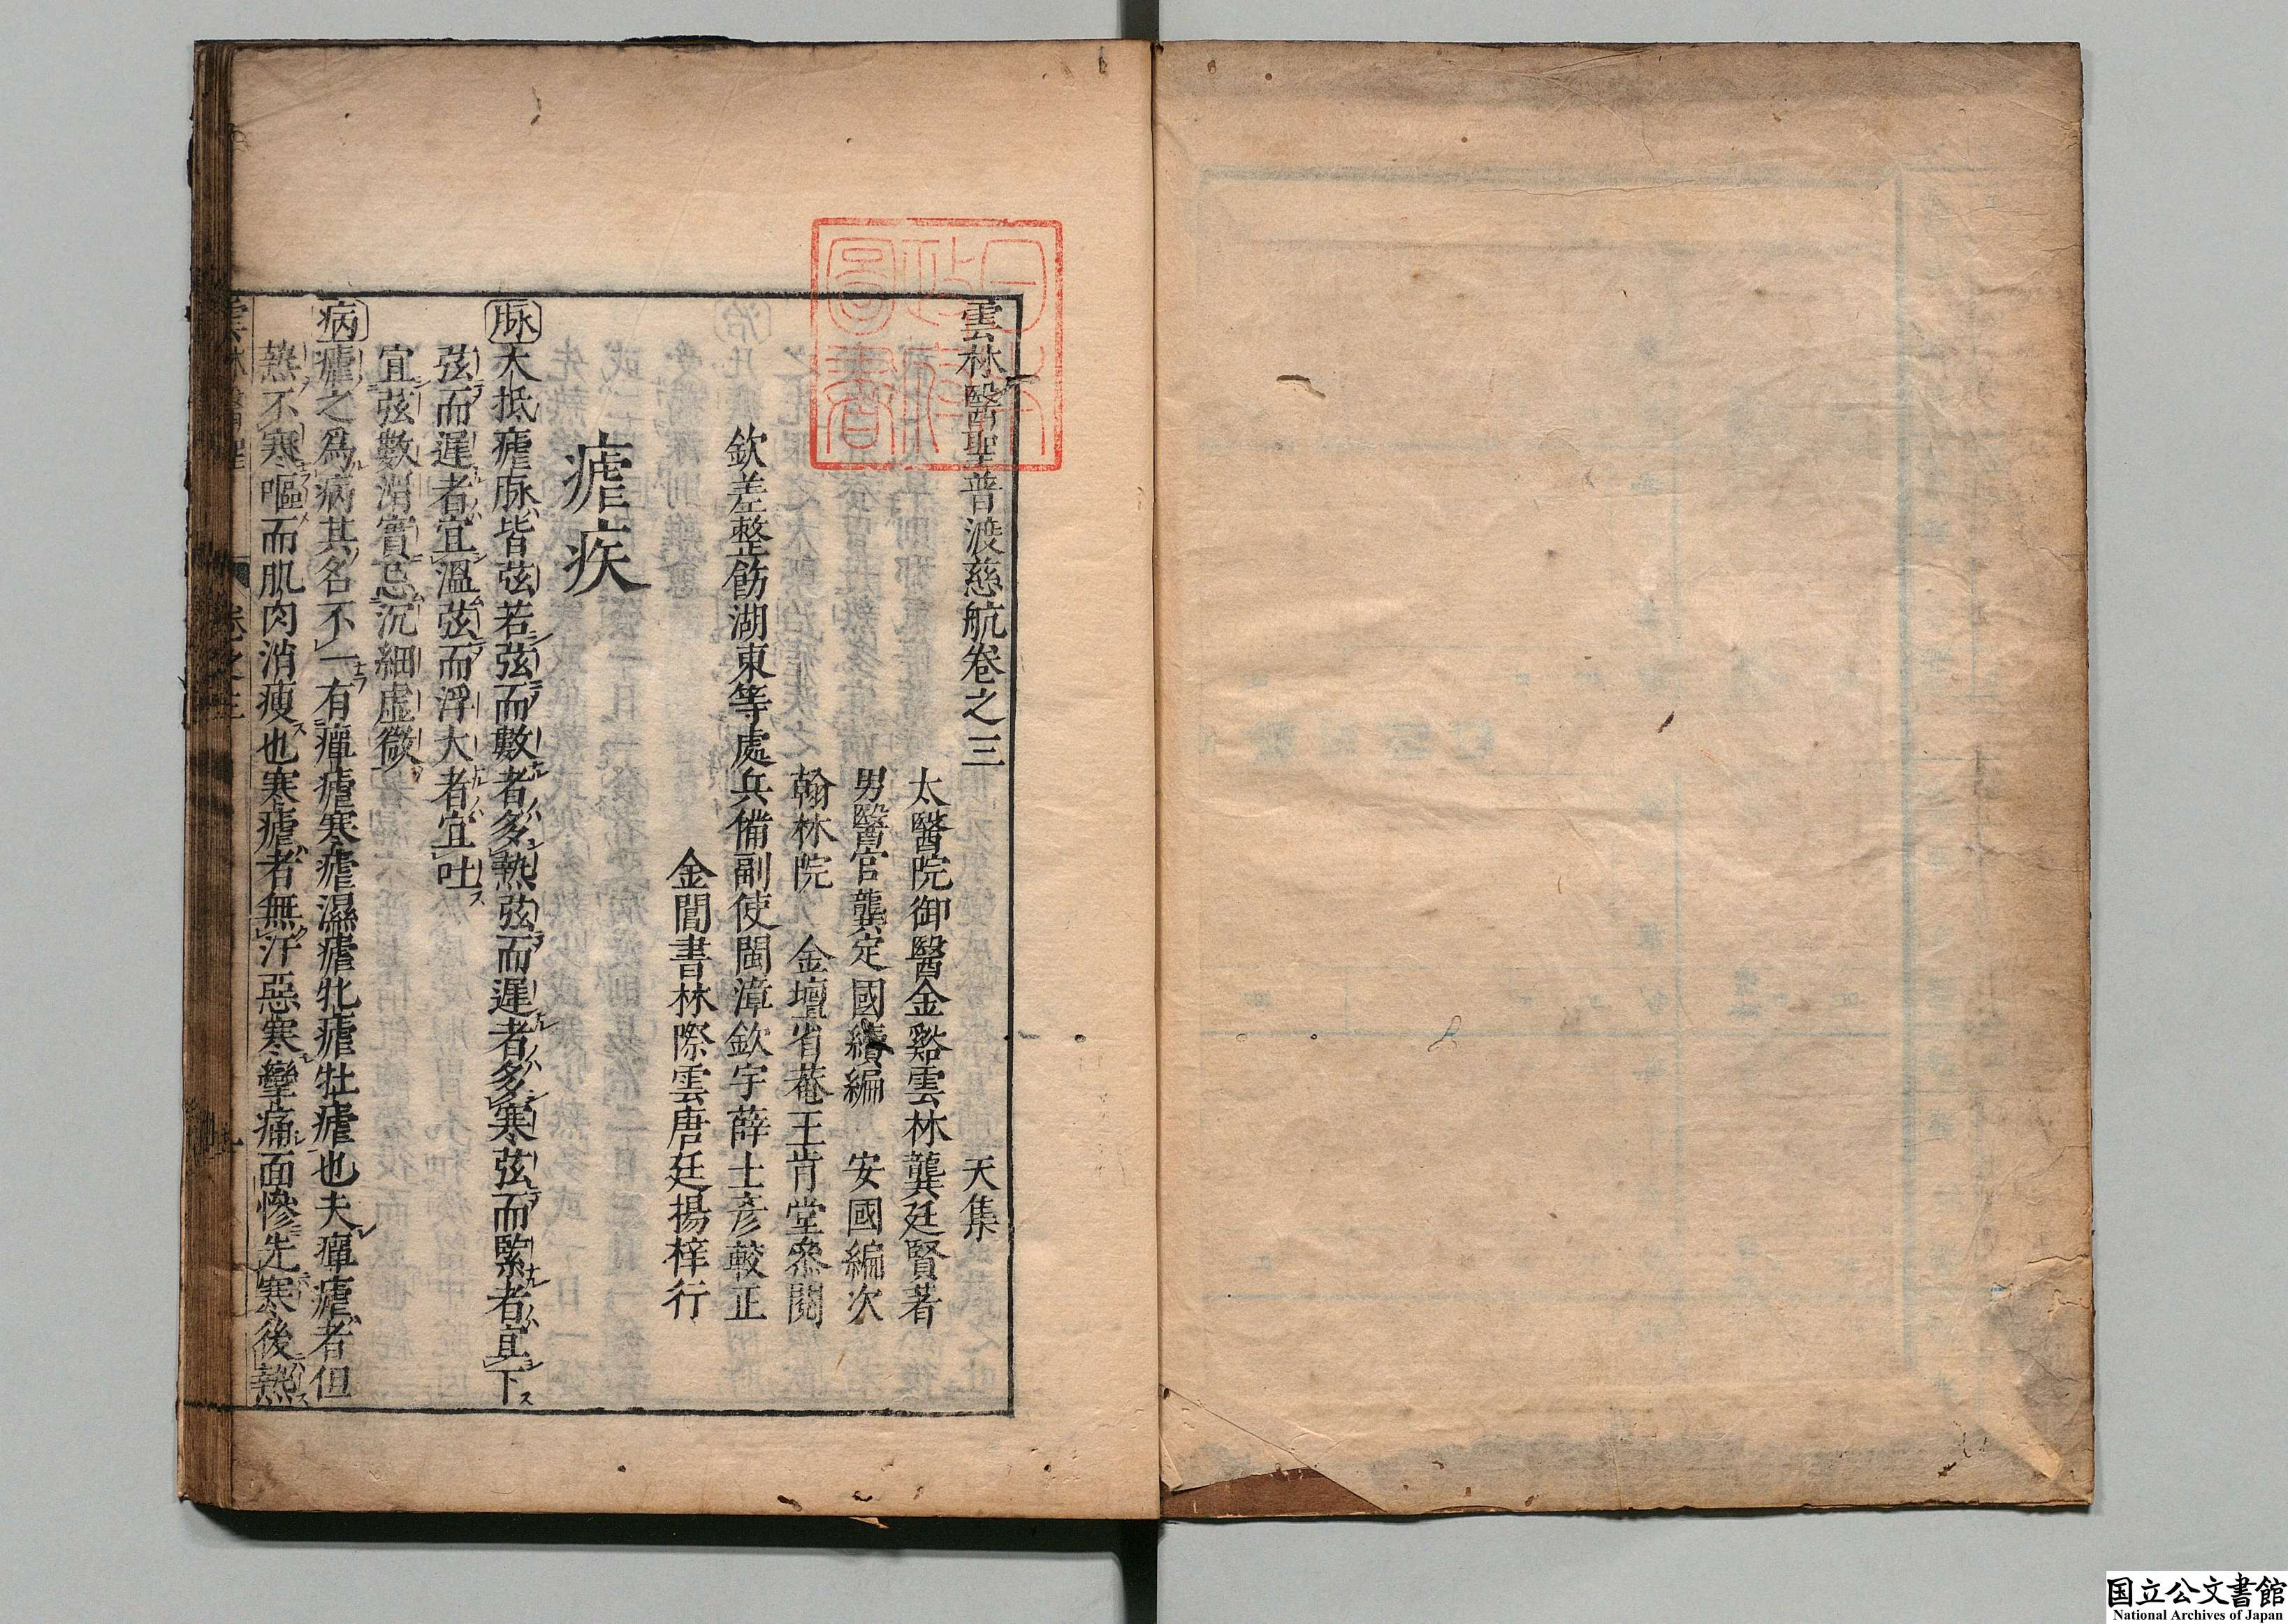 雲林醫聖普渡慈航卷之三　天集
太醫院御醫金谿雲林龔廷賢著
男醫官龔定國續編　安國編次
翰林院　金壇省菴王肯堂叅閱
欽差整飭湖東等處兵備副使閩漳欽宇薛士彥較正
金閶書林際雲唐廷揚梓行
瘧疾
脉大抵瘧脉皆弦若弦而數者多熱弦而遲者多寒弦而緊者宜下
弦而遲者宜溫弦而浮大者宜吐
宜弦數滑實忌沉細虛微
病瘧之爲病其名不一有癉瘧寒瘧濕瘧牝瘧牡瘧也夫癉瘧者但
熱不寒嘔而肌肉消瘦也寒瘧者無汗惡寒攣痛面慘先寒後熱
卷之三
日本政府圖書
国立公文書館
National Archives of Japan